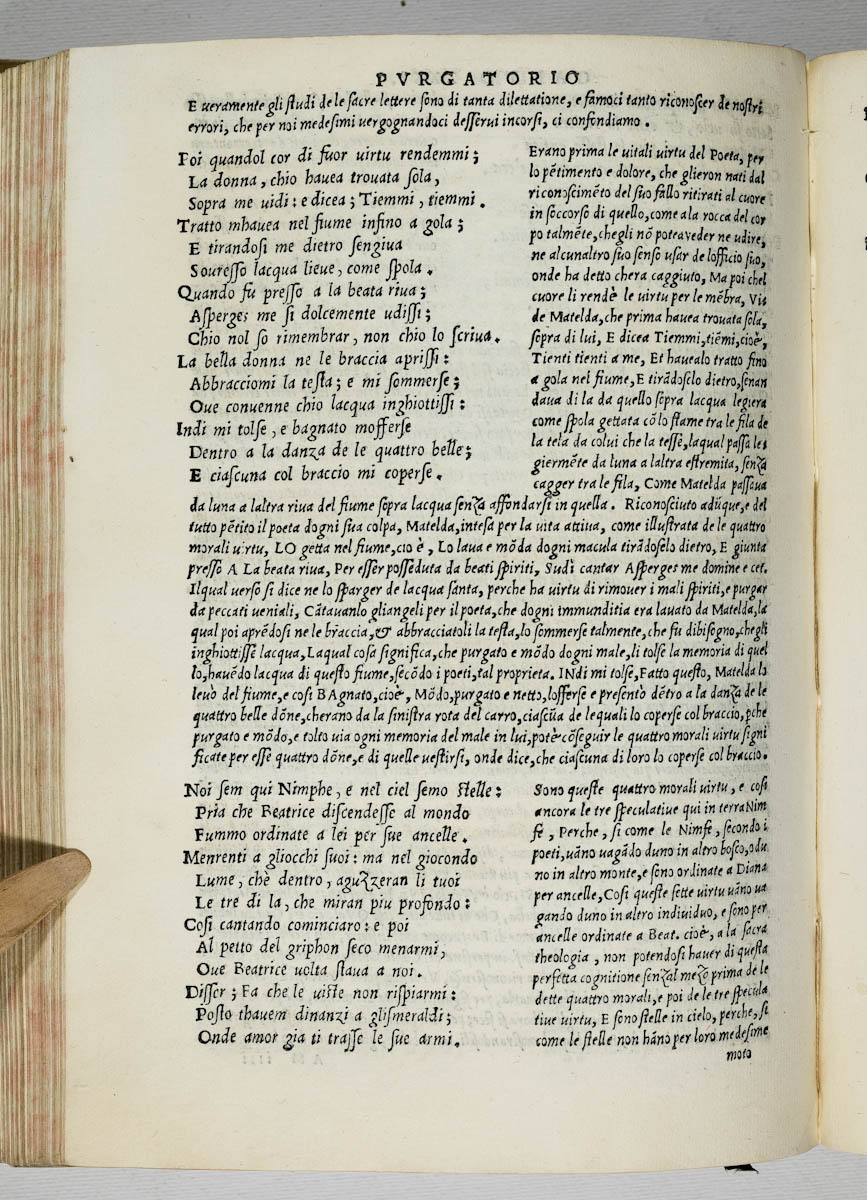 PVRGATORIO
E ueramente gli studi de le sacre lettere sono di tanta dilettatione, e famoci tanto riconoscer de nostri
errori, che per noi medesimi uergognandoci desserui incorsi, ci confondiamo.
Poi quandol cor di fuor uirtu rendemmi;
La donna, chio hauea trouata sola,
Sopra me uidi: e dicea; Tiemmi, tiemmi.
Tratto mhauea nel fiume infino a gola;
E tirandosi me dietro sengiua
Souresso lacqua lieue, come spola.
Quando fu presso a la beata riua;
Asperges me si dolcemente udissi;
Chio nol so rimembrar, non chio lo scriua.
La bella donna ne le braccia aprissi:
Abbracciomi la testa; e mi sommerse;
Oue conuenne chio lacqua inghiottissi:
Indi mi tolse, e bagnato mofferse
Dentro a la danza de le quattro belle;
E ciascuna col braccio mi coperse.
Erano prima le uitali uirtu del Poeta, per
lo pētimento e dolore, che glieron nati dal
riconoscimēto del suo fallo ritirati al cuore
in soccorso di quello, come a la rocca del cor
po talmēte, chegli nō potea veder ne udire,
ne alcunaltro suo senso usar de lofficio suo,
onde ha detto chera caggiuto, Ma poi chel
cuore li rendè le uirtu per le mēbra, Vi
de Matelda, che prima hauea trouata sola,
sopra di lui, E dicea Tiemmi, tiēmi, cioè,
Tienti tienti a me, Et hauealo tratto fino
a gola nel fiume, E tirādoselo dietro, senan
daua di la da quello sopra lacqua legiera
come spola gettata cō lo stame tra le fila de
la tela da colui che la tesse, laqual passa le
giermēte da luna a laltra estremita, senza
cagger tra le fila, Come Matelda passaua
da luna a laltra riua del fiume sopra lacqua senza affondarsi in quella. Riconosciuto adūque, e del
tutto pētito il poeta dogni sua colpa, Matelda, intesa per la uita attiua, come illustrata de le quattro
morali uirtu, LO getta nel fiume, cio è, Lo laua e mōda dogni macula tirādoselo dietro, E giunta
presso A La beata riua, Per esser posseduta da beati spiriti, Sudì cantar Asperges me domine e cet.
Ilqual verso si dice ne lo sparger de lacqua santa, perche ha virtu di rimouer i mali spiriti, e purgar
da peccati ueniali, Cātauanlo gliangeli per il poeta, che dogni immunditia era lauato da Matelda, la
qual poi aprēdosi ne le braccia, & abbracciatoli la testa, lo sommerse talmente, che fu dibisogno, chegli
inghiottisse lacqua, Laqual cosa significa, che purgato e mōdo dogni male, li tolse la memoria di quel
lo, hauēdo lacqua di questo fiume, secōdo i poeti, tal proprieta. INdi mi tolse, Fatto questo, Matelda lo
leuò del fiume, e cosi BAgnato, cioè, Mōdo, purgato e netto, lofferse e presentò dētro a la danza de le
quattro belle dōne, cherano da la sinistra rota del carro, ciascūa de lequali lo coperse col braccio, pche
purgato e mōdo, e tolto uia ogni memoria del male in lui, potè cōseguir le quattro morali uirtu signi
ficate per esse quattro dōne, e di quelle uestirsi, onde dice, che ciascuna di loro lo coperse col braccio.
Noi sem qui Nimphe, e nel ciel semo stelle:
Pria che Beatrice discendesse al mondo
Fummo ordinate a lei per sue ancelle.
Menrenti a gliocchi suoi: ma nel giocondo
Lume, chè dentro, aguzzeran li tuoi
Le tre di la, che miran piu profondo:
Cosi cantando cominciaro: e poi
Al petto del griphon seco menarmi,
Oue Beatrice uolta staua a noi.
Disser; Fa che le uiste non rispiarmi:
Posto thauem dinanzi a glismeraldi;
Onde amor gia ti trasse le sue armi.
Sono queste quattro morali uirtu, e cosi
ancora le tre speculatiue qui in terra Nim
fe, Perche, si come le Nimfe, secondo i
poeti, uāno uagādo duno in altro bosco, o du
no in altro monte, e sono ordinate a Diana
per ancelle, Cosi queste sette uirtu uāno ua
gando duno in altro indiuiduo, e sono per
ancelle ordinate a Beat. cioè, a la sacra
theologia, non potendosi hauer di questa
perfetta cognitione senzal mezo prima de le
dette quattro morali, e poi de le tre specula
tiue uirtu, E sono stelle in cielo, perche, si
come le stelle non hāno per loro medesime
moto